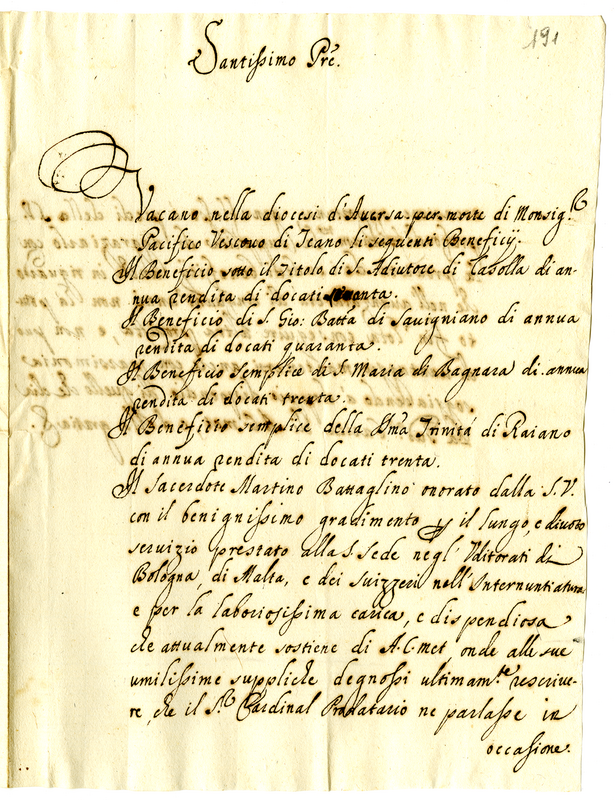 191
Santissimo Prê.
Vacano nella diocesi d'Aversa per morte di Monsig.r
Pacifico Vescovo di Teano li seguenti Beneficij.
Il Beneficio sotto il titolo di S. Adiutore di Casolla di an-
nua rendita di docati
Il Beneficio di S. Gio: Batta di Savigniano di annua
rendita di docati quaranta.
Il Beneficio semplice di S. Maria di Bagnara di annua
rendita di docati trenta.
Il Beneficio semplice della SSma Trinitá di Raiano
di annua rendita di docati trenta.
Il Sacerdote Martino Battaglino onorato dalla S.V.
con il benignissimo gradimento il lungo, e divoto
servizio prestato alla S. Sede negl' Vditorati di
Bologna, di Malta, e dei Suizzeri nell'Internuntiatura
e per la laboriosissima carica, e dispendiosa
che attualmente sostiene di A.C. met, onde alle sue
umilissime suppliche degnossi ultimam.te rescrive-
re, che il S.r Cardinal Prodatario ne parlasse in
occasione.